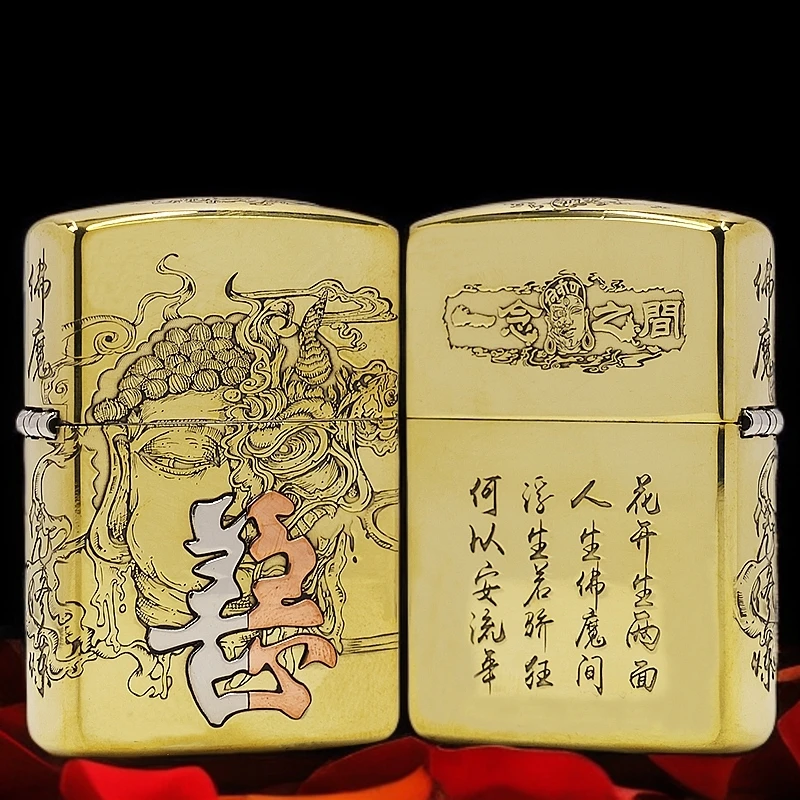 佛魔
一念之間
花开生两面
人生佛魔间
浮生若骄狂
何以安流年
佛魔